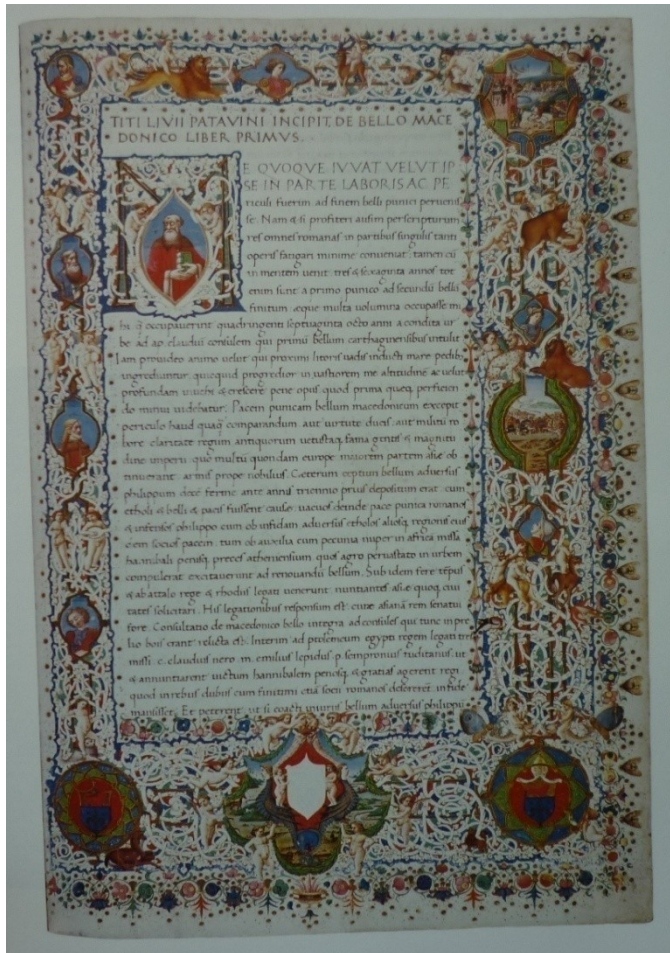 TITI LIVII PATAVINI INCIPIT DE BELLO MACE
DONICO LIBER PRIMVS.
ME QVOQVE IVVAT VELVT IP
SE IN PARTE LABORIS AC PE
riculi fuerim ad finem belli punici peruenis
se. Nam & si profiteri ausim perscripturum
res omnes romanas in partibus singulis tanti
operis fatigari minime conueniat: tamen cū
in mentem uenit tres & sexaginta annos tot
enim sunt a primo punico ad secundū bellū
finitum æque multa uolumina occupasse mi
hi q̄ occupauerint quadringenti septuaginta octo anni a condita ur
be ad ap. claudiū consulem qui primū bellum carthaginensibus intulit
Iam prouideo animo uelut qui proximi litoris uadis inducti mare pedibꝫ
ingrediuntur, quicquid progredior in uastiorem me altitudinē ac uelut
profundum inuehi & crescere pene opus quod prima queq; perficien
do minui uidebatur. Pacem punicam bellum macedonicum excepit
periculo haud quaq̄ comparandum aut uirtute ducis, aut militū ro
bore claritate regum antiquorum uetustaq; fama gentis & magnitu
dine imperii quo multa quondam europe maiorem partem asie ob
tinuerant armis prope nobilius. Cæterum ceptum bellum aduersus
philippum decē ferme ante annis triennio prius depositum erat cum
etholi & belli & pacis fuissent cause. uacuos deinde pace punica romanos
& infensos philippo cum ob infidam aduersus etholos aliosq; regionis eius
dem socios pacem, tum ob auxilia cum pecunia nuper in africa missa
hannibali penisq; preces atheniensium quos agro peruastato in urbem
compulerat excitauerunt ad renouandū bellum. Sub idem fere tēpus
& ab attalo rege & rhodiis legati uenerunt nuntiantes asie quoq; ciui
tates solicitari. His legationibus responsum est: cure asianā rem senatui
fore. Consultatio de macedonico bello integra ad consules qui tunc in pre
lio bois erant reiecta est. Interim ad ptolemeum egypti regem legati tres
missi c. claudius nero. m. emilius lepidus p. sempronius tuditanus ut
& annuntiarent uictum hannibalem penosq; & gratias agerent regi
quod in rebus dubiis cum finitimi etiā socii romanos desererēt in fide
mansisset. Et peterent ut si coacti iniuriis bellum aduersus philippū